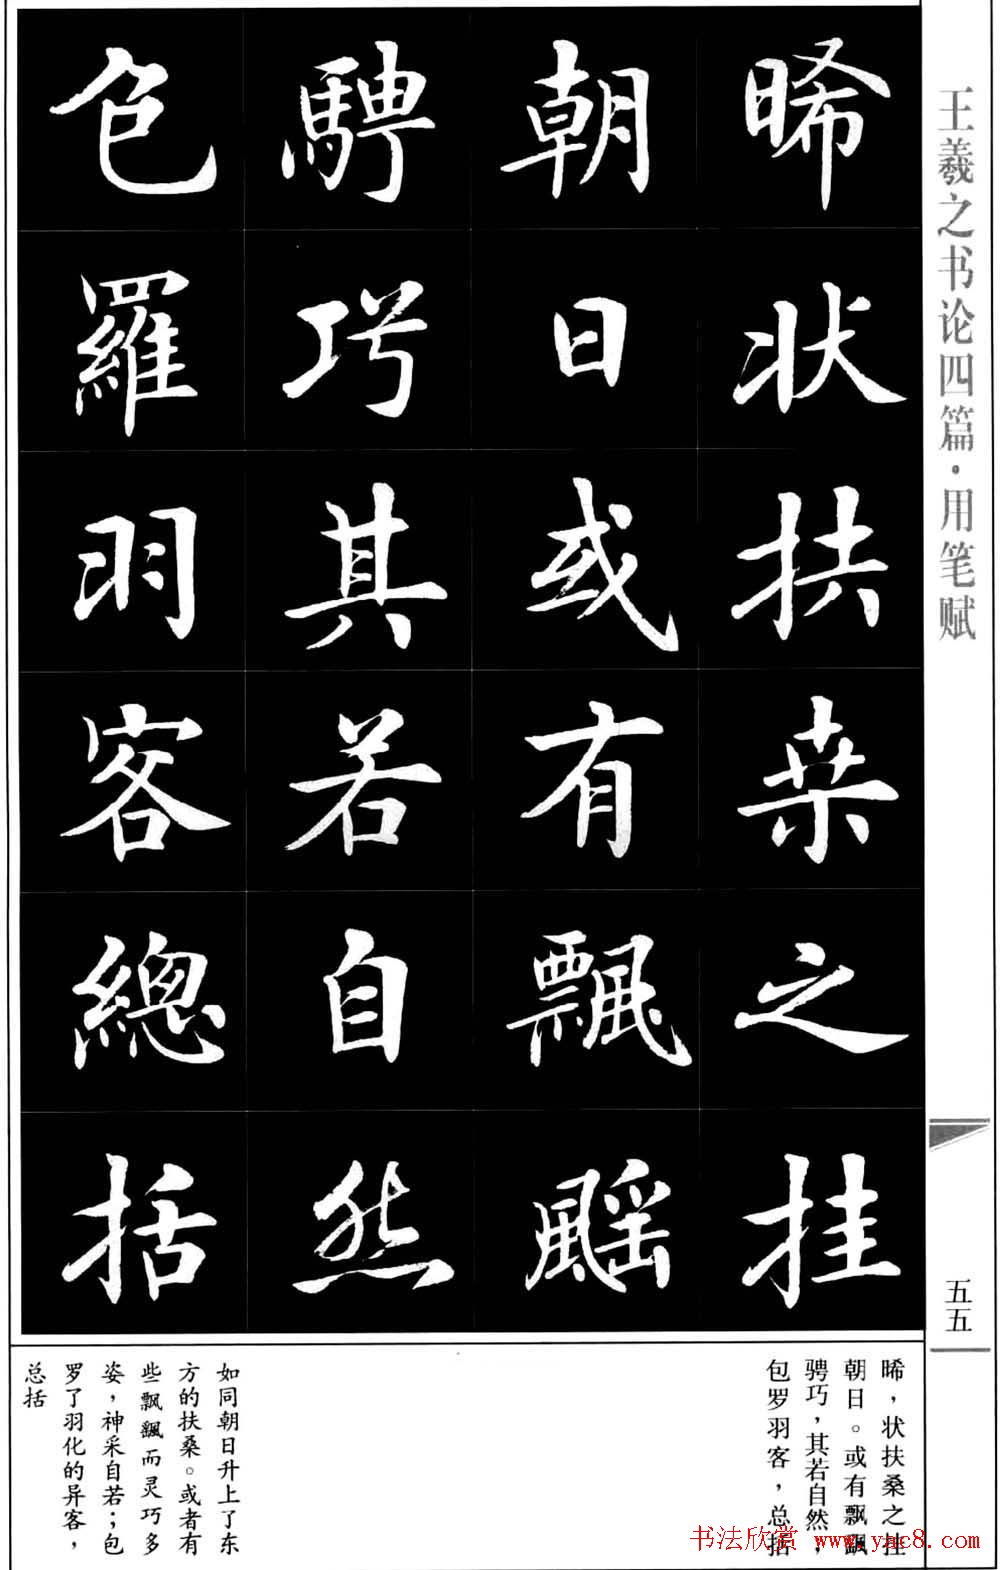 王羲之书论四篇·用笔赋
五五
晞状扶桒之挂
朝日或有飘飖
騁巧其若自然
包羅羽客總括
晞，状扶桑之挂
朝日。或有飘飖
骋巧，其若自然；
包罗羽客，总括
如同朝日升上了东
方的扶桑。或者有
些飘飖而灵巧多
姿，神采自若；包
罗了羽化的异客，
总括
书法欣赏 www.yac8.com